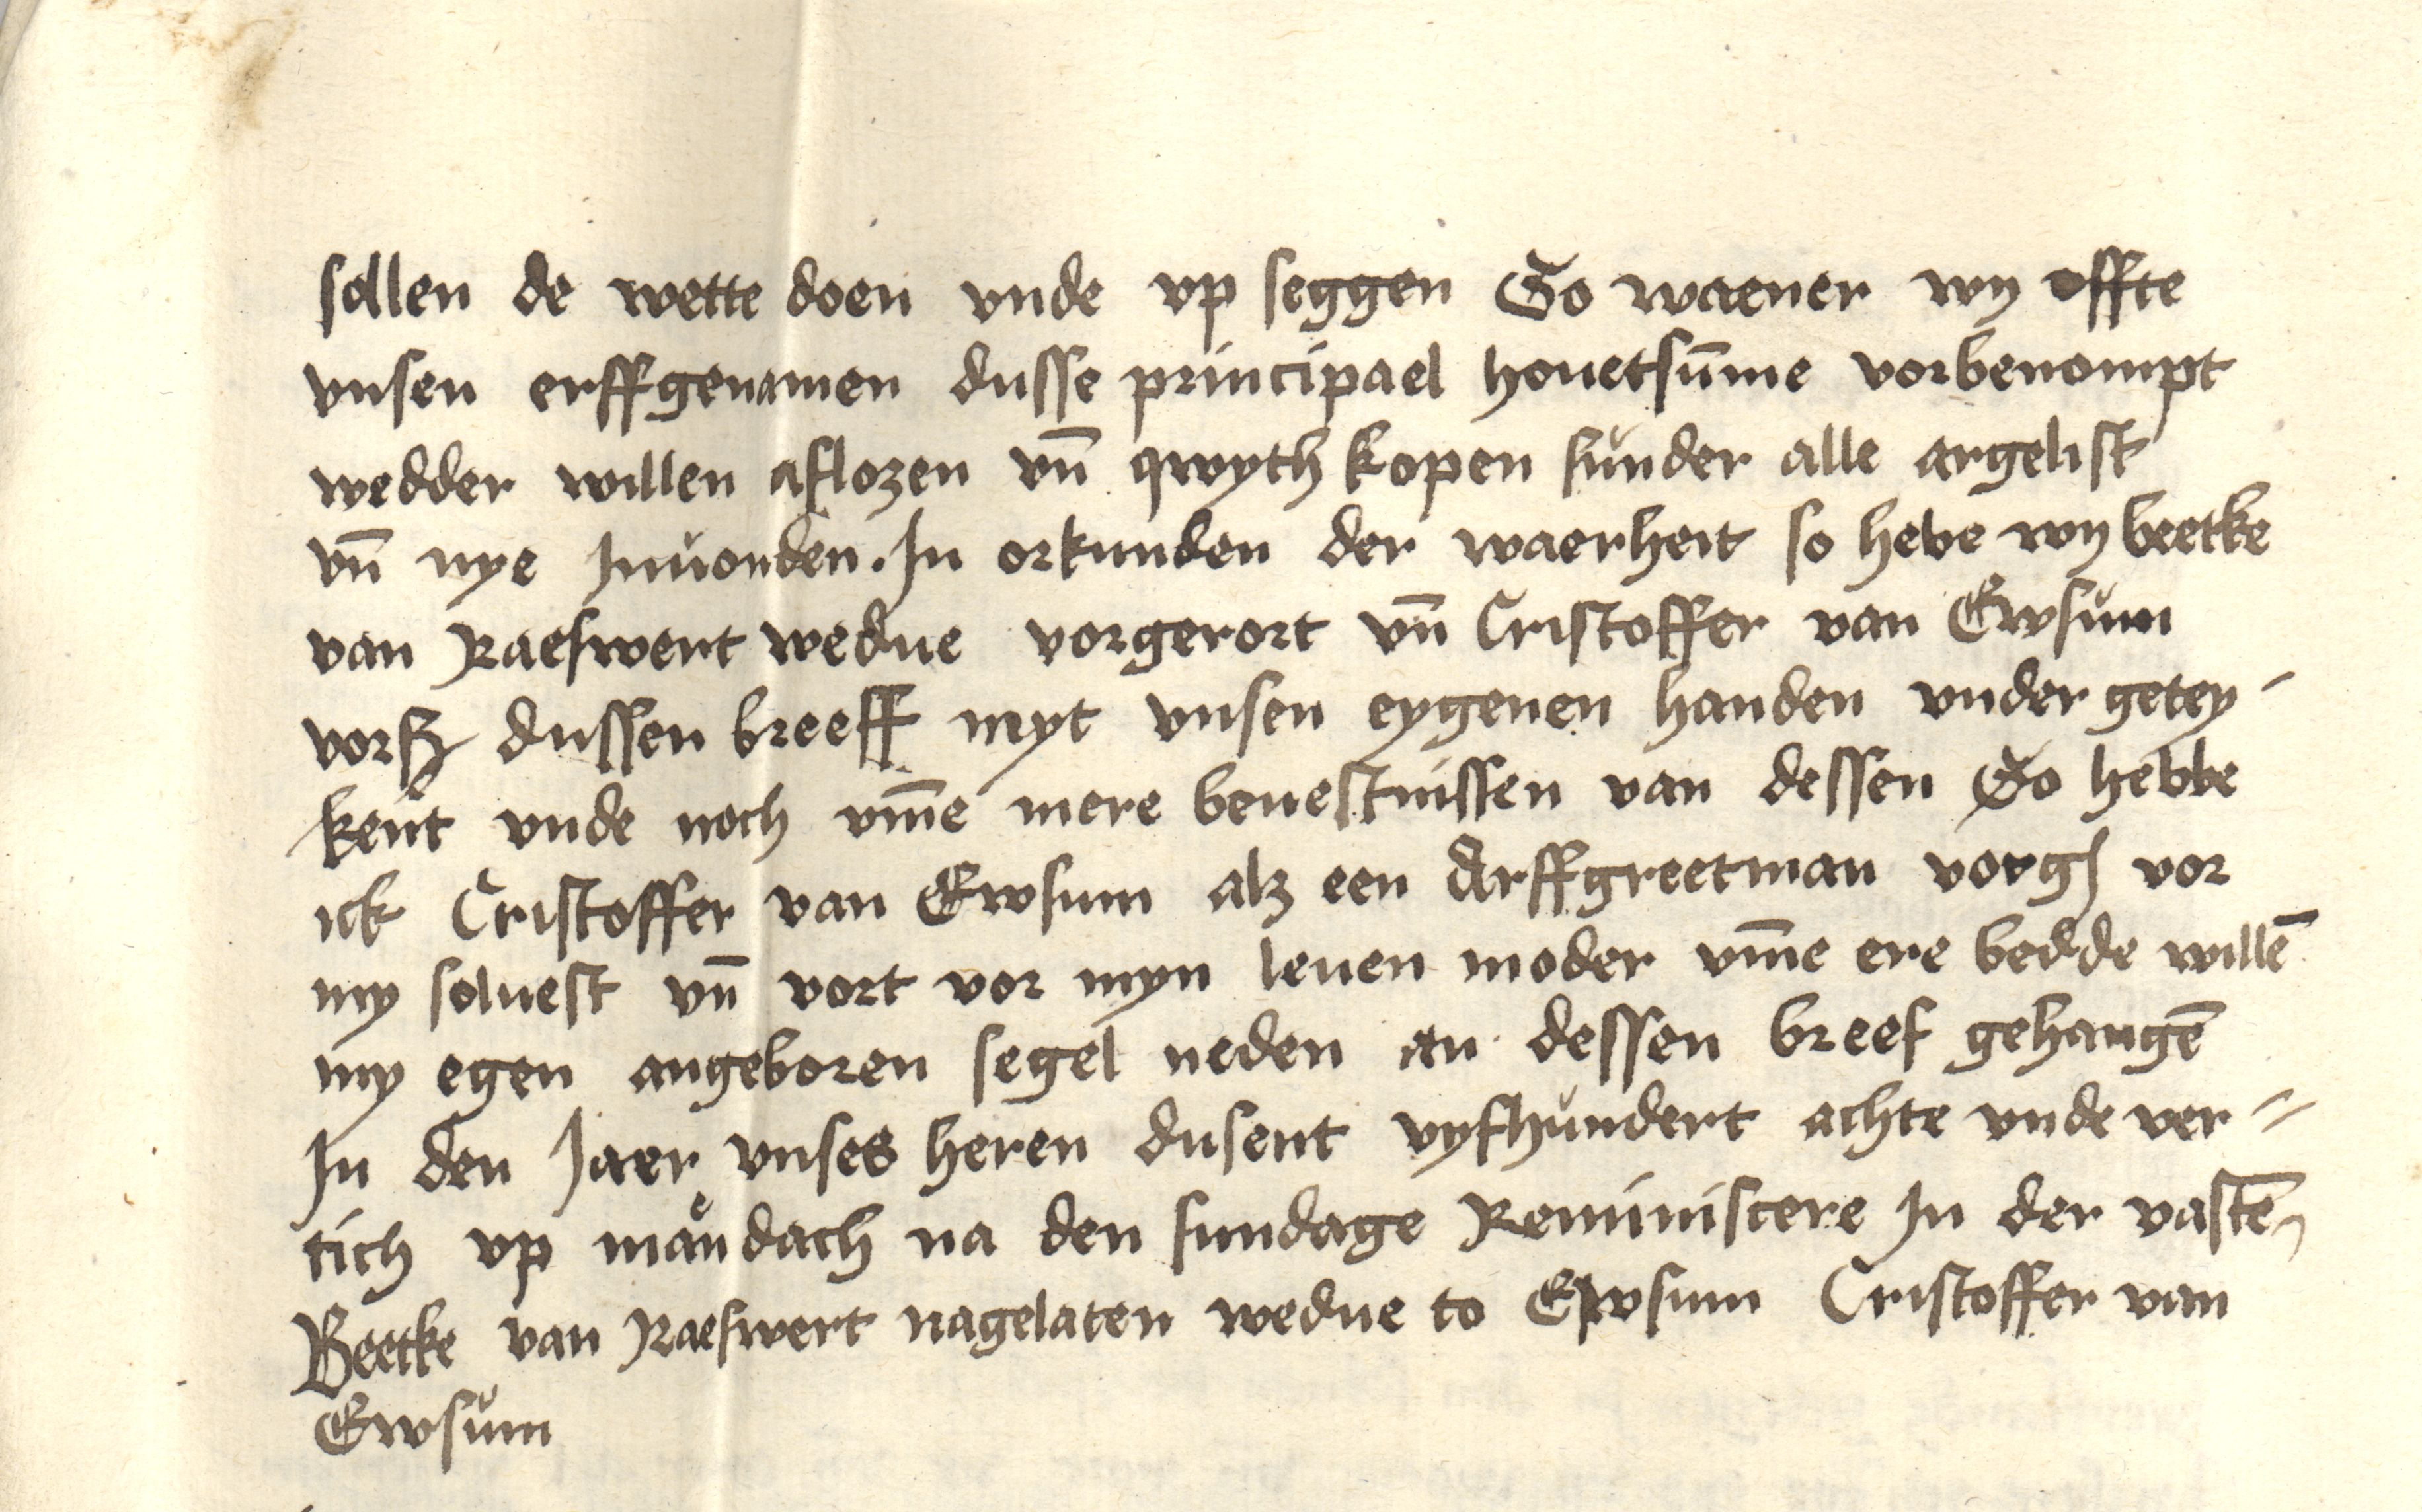 sollen de wette doen vnde vp seggen So waener wy offte
vnsen erffgenamen dusse principael houetsum̄e vorbenompt
wedder willen aflozen vn̄ qwyth kopen sunder alle argelist
vn̄ nye Inuonden. In orkunden der waerheit so hebe wy beetke
van Raeswert wedue vorgerort vn̄ Cristoffer van Ewsum
vorß dussen breeff myt vnsen eygenen handen vnder getey-
kent vnde noch vm̄e mere beuestnissen van dessen So hebbe
ick Cristoffer van Ewsum alz een Arffgreetman vorgß vor
my soluest vn̄ vort vor myn leuen moder vm̄e ere bedde willē
my egen angeboren segel neden an dessen breef gehangē
In den Jaer vnses heren dusent vyfhundert achte vnde ver=
tich vp mandach na den sundage Reminiscere In der vastē
Beetke van Raeswert nagelaten wedue to Ewsum Cristoffer van
Ewsum